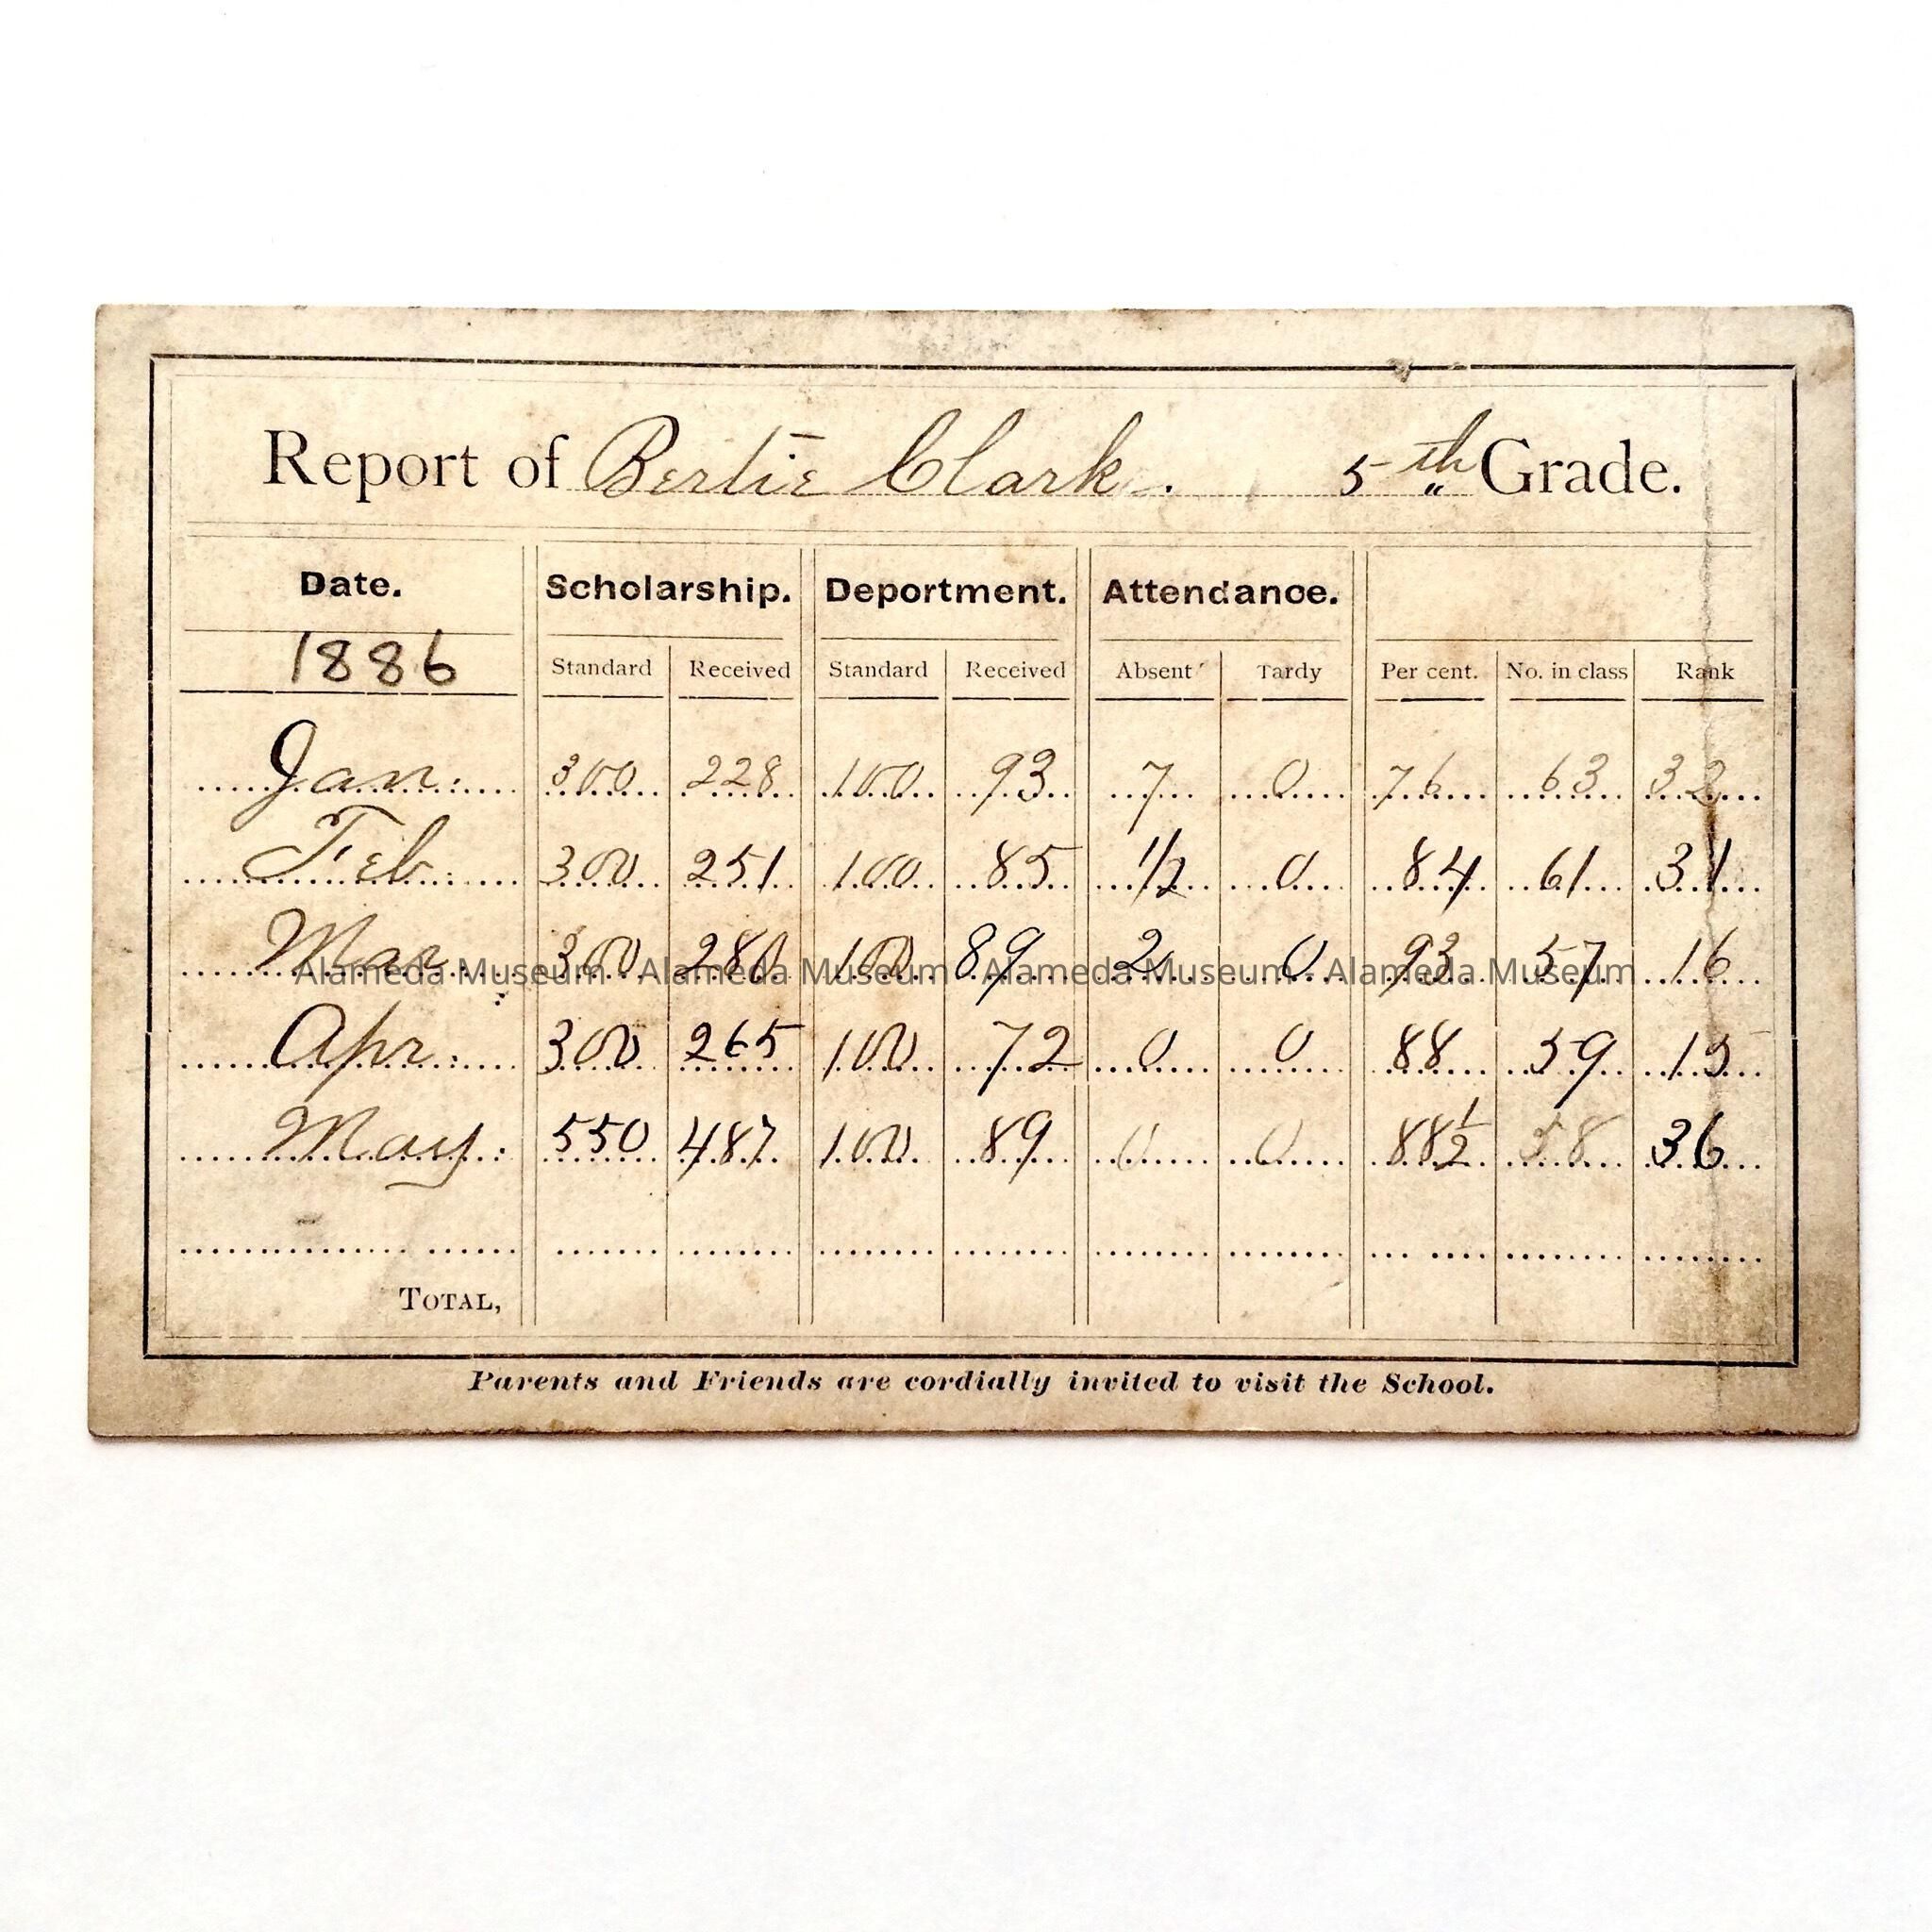 Report of Bertie Clark. 5th Grade.
Date. Scholarship. Deportment. Attendance.
1886 Standard Received Standard Received Absent Tardy Per cent. No. in class Rank
Jan. 300 228 100 93 7 0 76 63 32
Feb. 300 251 100 85 1/2 0 84 61 31
Mar. 300 280 100 89 2 0 93 57 16
Alameda Museum · Alameda Museum · Alameda Museum · Alameda Museum
Apr. 300 265 100 72 0 0 88 59 15
May. 550 487 100 89 0 0 88 1/2 58 36
TOTAL,
Parents and Friends are cordially invited to visit the School.